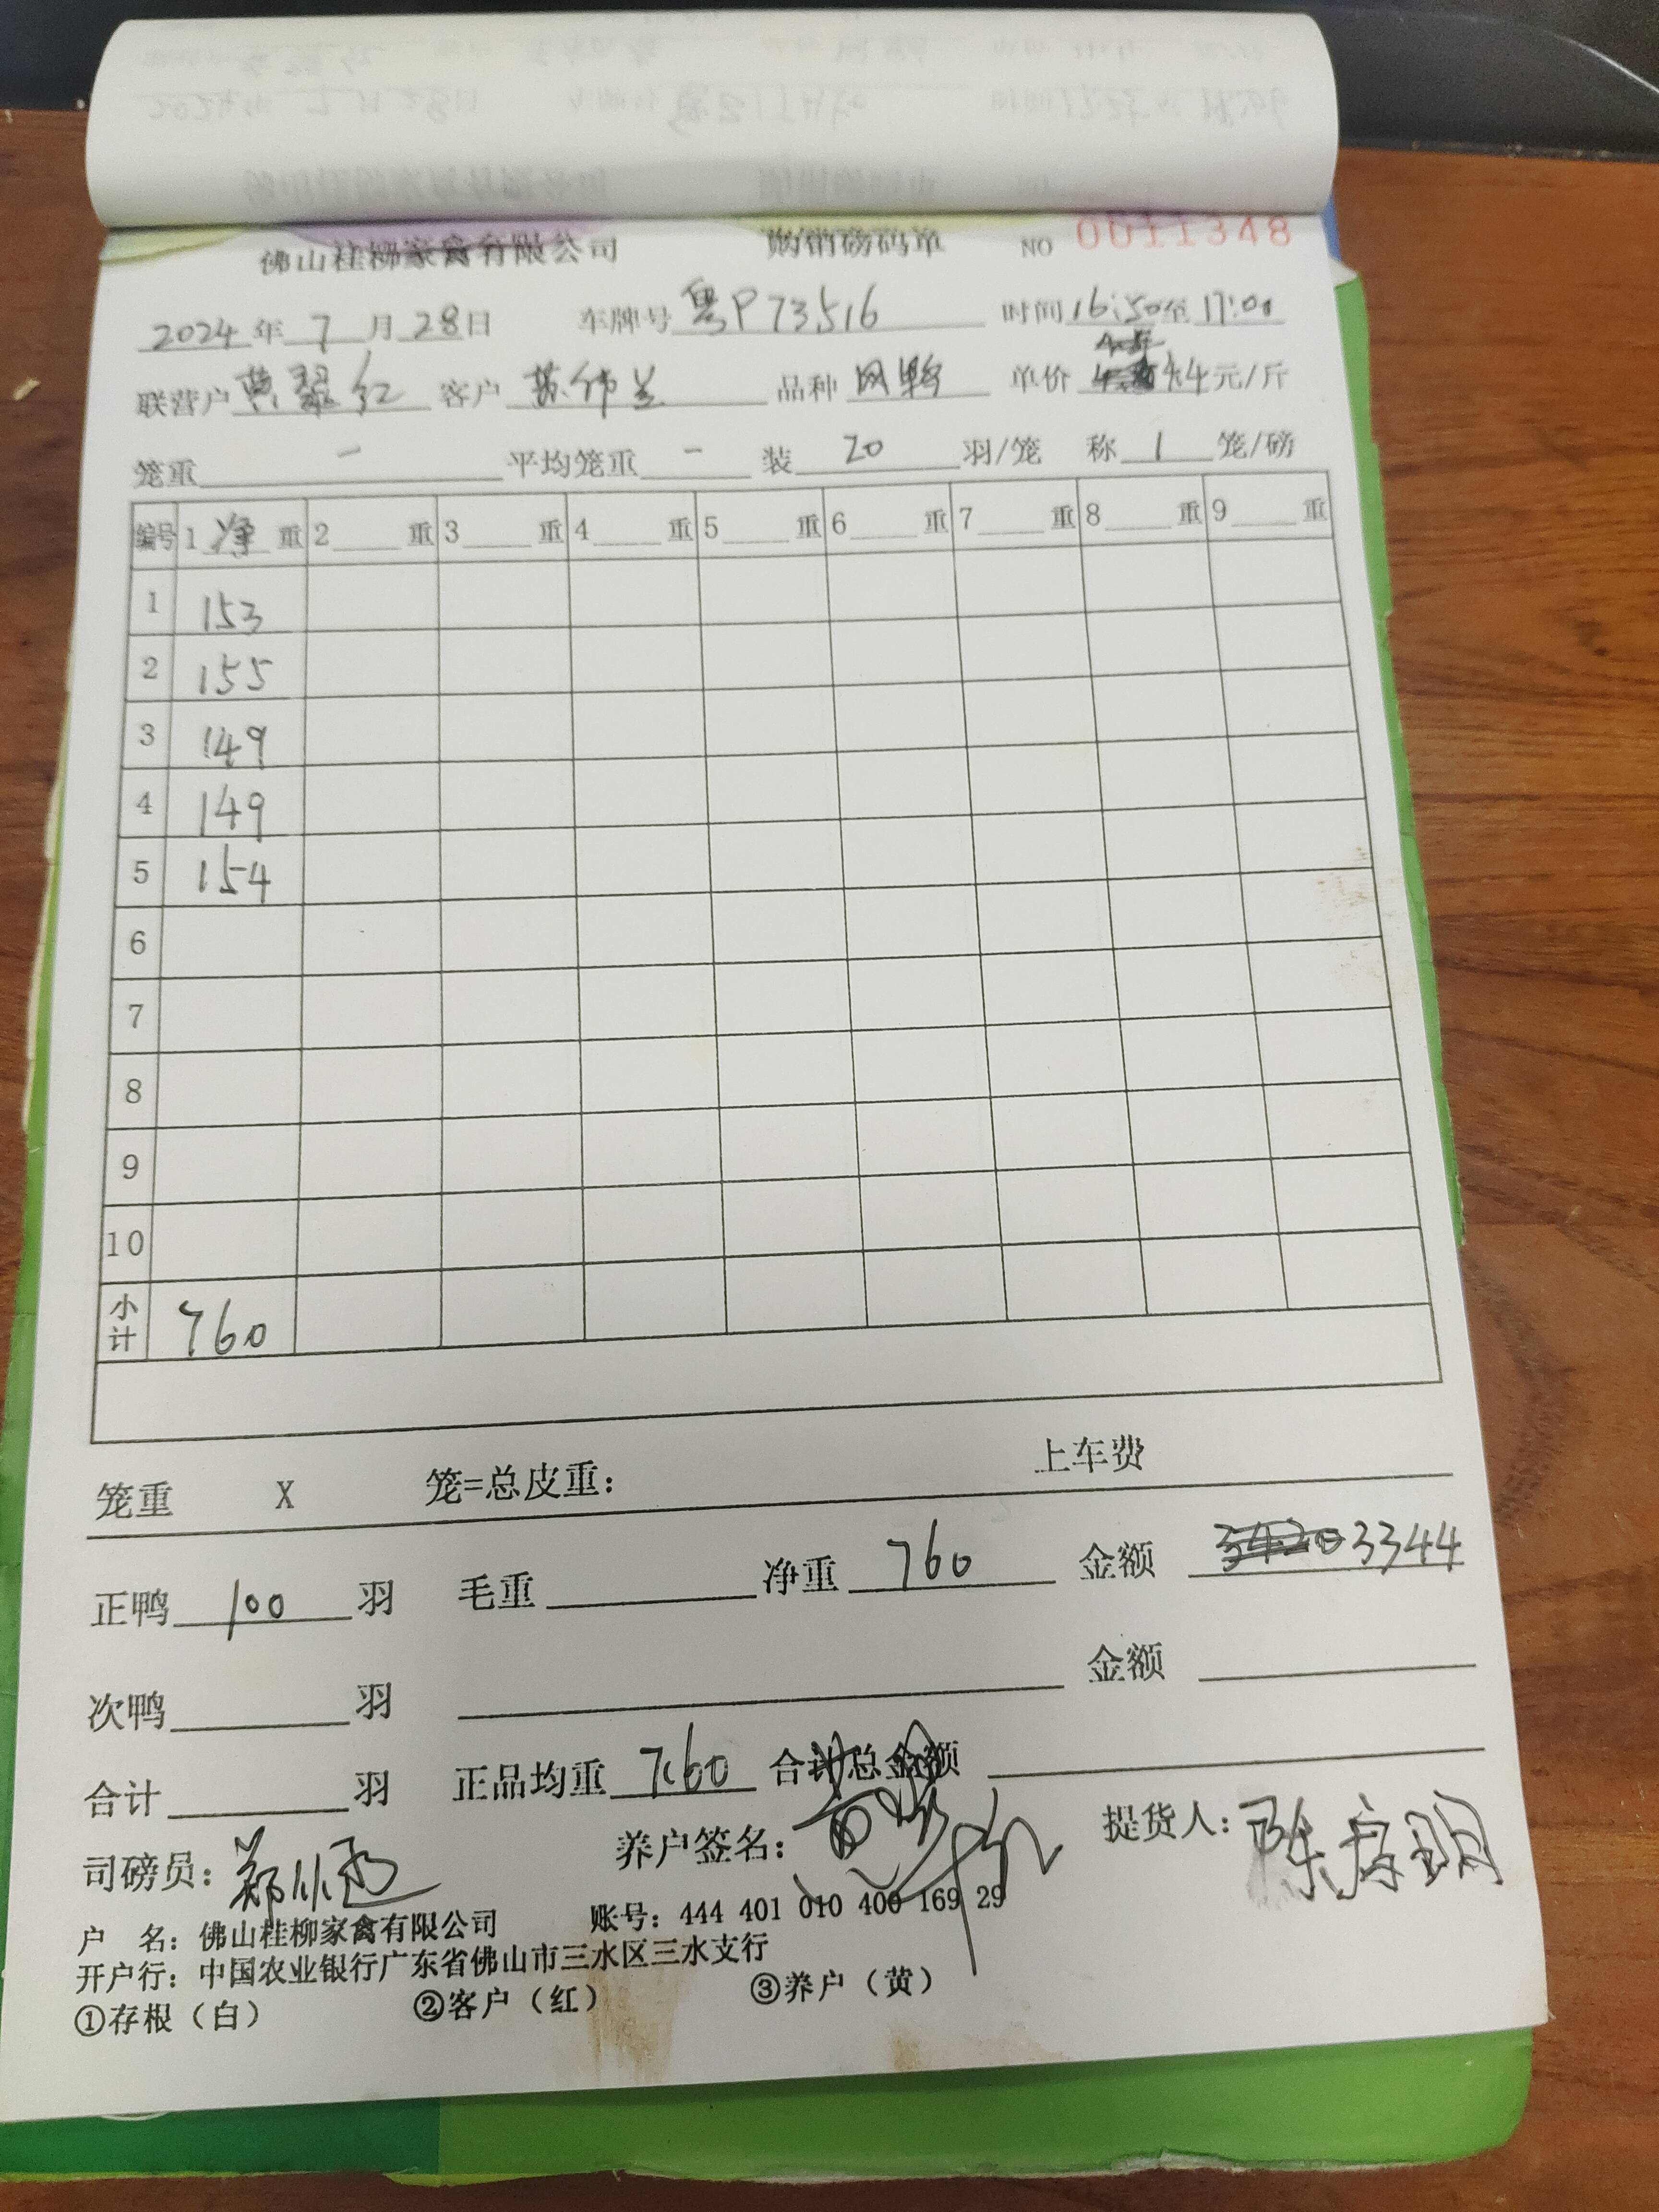 佛山桂柳家禽有限公司 购销磅码单 NO 0011348
2024年 7 月 28日 车牌号 粤P73516 时间 16:50至 17:00
联营户 黄翠红 客户 苏伟兰 品种 网鸭 单价 4.4元/斤
笼重 - 平均笼重 - 装 20 羽/笼 称 1 笼/磅
编号 1 净 重 2 重 3 重 4 重 5 重 6 重 7 重 8 重 9 重
1 153
2 155
3 149
4 149
5 154
6
7
8
9
10
小计 760
笼重 X 笼=总皮重: 上车费
正鸭 100 羽 毛重 净重 760 金额 3420 3344
次鸭 羽 金额
合计 羽 正品均重 7.60 合计总金额
司磅员: 郑 养户签名: 提货人: 陈
户 名: 佛山桂柳家禽有限公司 账号: 444 401 010 400 169 29
开户行: 中国农业银行广东省佛山市三水区三水支行
①存根(白) ②客户(红) ③养户(黄)